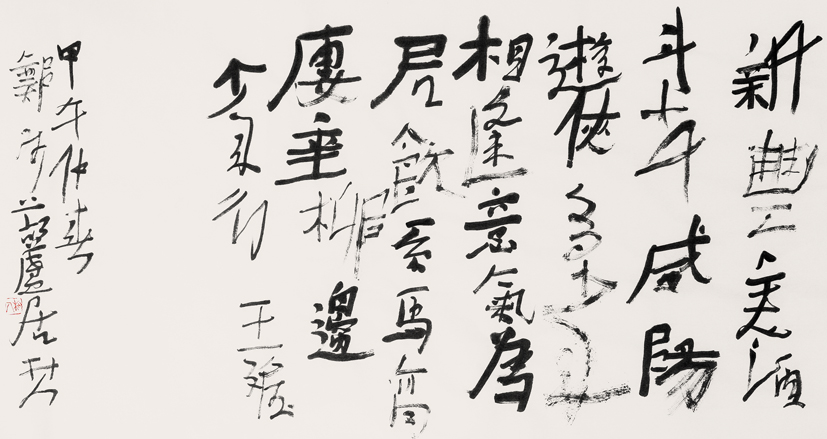 新豐美酒
斗十千咸陽
遊俠多少年
相逢意氣為
君飲系馬高
廔垂柳邊
少年行 王維
甲午仲春
鄭 居